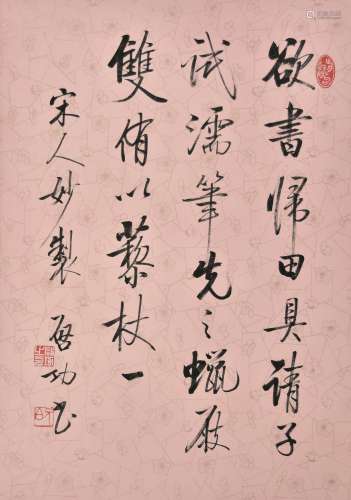 欲書歸田具請子
試濡筆先之蠟屐
雙侑以藜杖一
宋人妙製 啟功書